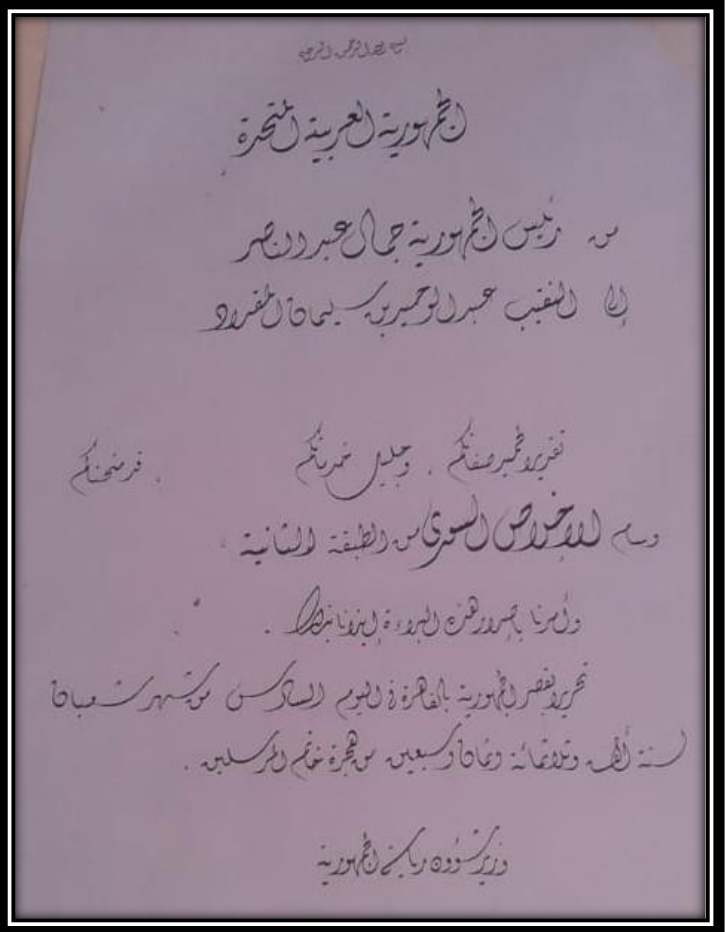 بسم الله الرحمن الرحيم
الجمهورية العربية المتحدة
من رئيس الجمهورية جمال عبد الناصر
إلى النقيب عبد الوحيد بن سليمان المقداد
تقديراً لحميد صفاتكم . وجليل خدماتكم . قد منحناكم
وسام الإخلاص السوري من الطبقة الثانية
وأمرنا بإصدار هذه البراءة إيذاناً بذلك .
تحريراً بقصر الجمهورية بالقاهرة في اليوم السادس من شهر شعبان
لسنة ألف وثلاثمائة وثمان وسبعين من هجرة خاتم المرسلين .
وزير شؤون رياسة الجمهورية